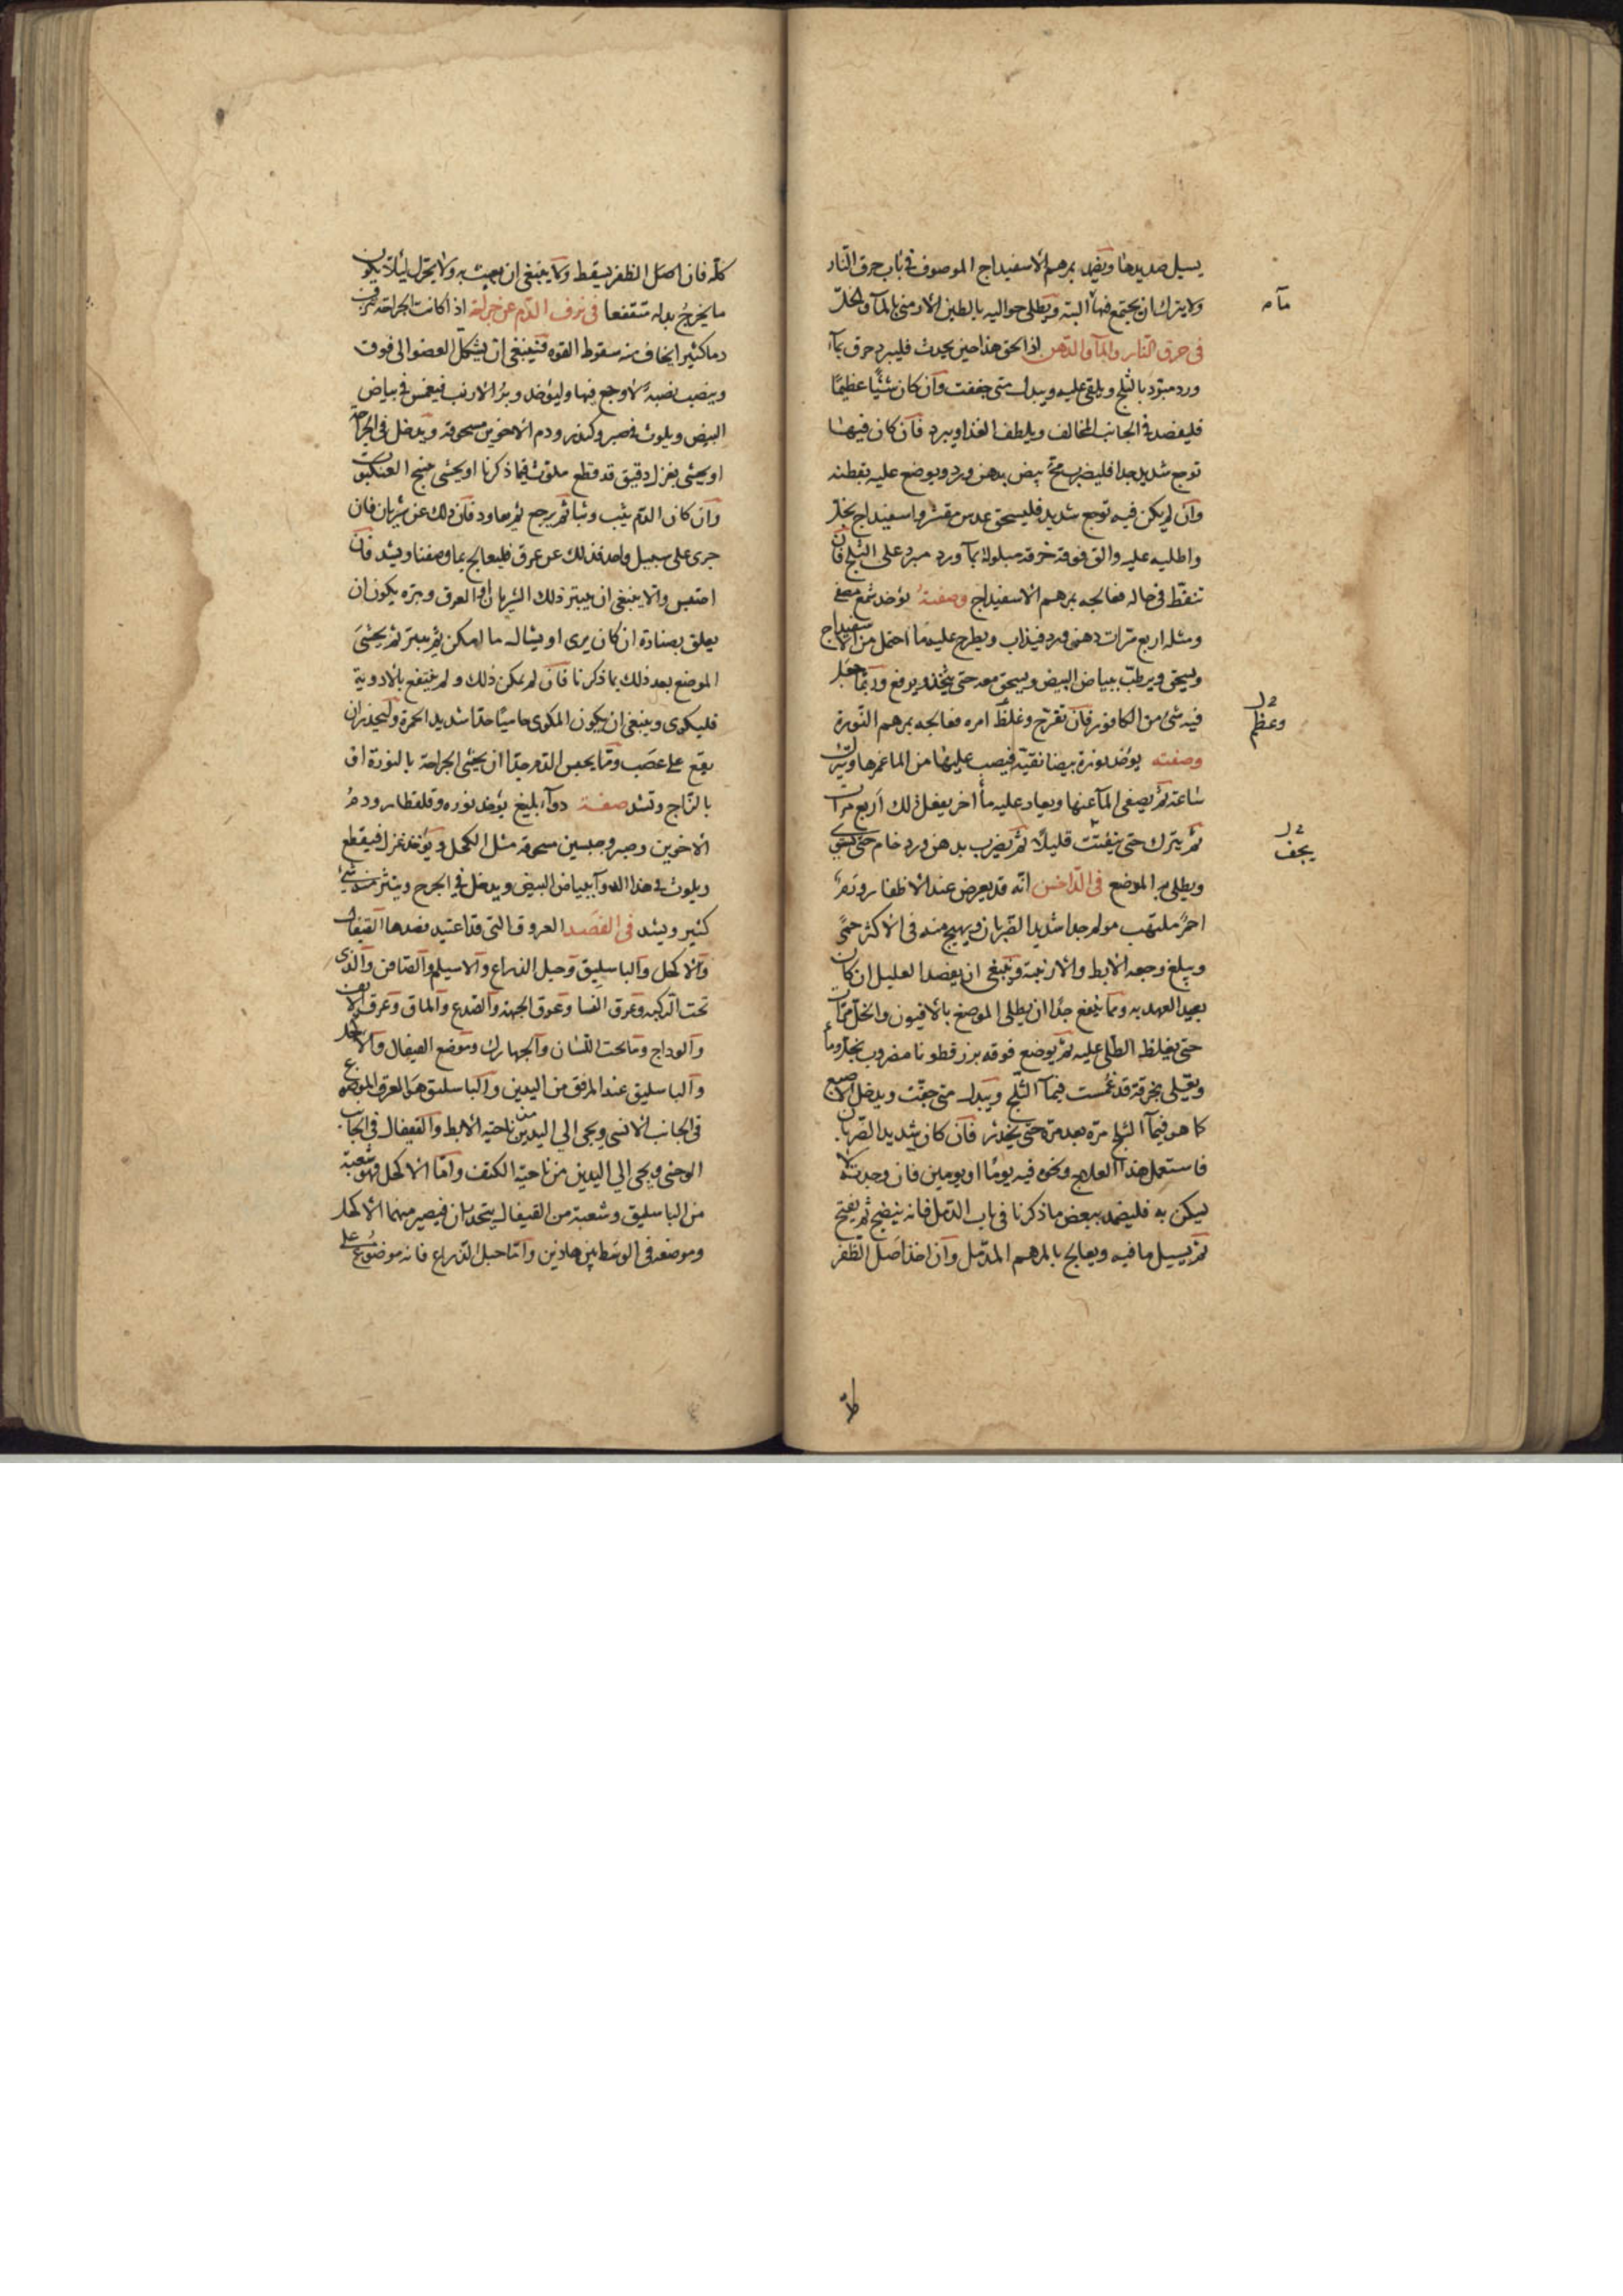 يسيل صديدها ويضمد بمرهم الاسفيداج الموصوف في باب حرق النار
ولا يترك ان يجتمع فيها البته ويطلى حواليه بالطين الارمنى بالمآ والخل
مآء
فى حرق النار والمآ والدهن اذا لحق هذا حين يحدث فليبرد حرق بمآ
ورد مبرّد بالثلج ويلقى عليه ويبدل متى جففت وان كان شيئًا عظيمًا
فليفصد فى الجانب المخالف ويلطف الغذا ويبرد فان كان فيها
توجع شديد جدا فليضرب مح بيض بدهن ورد ويوضع عليه بقطنه
وان لم يكن فيه توجع شديد فليسحق عدس مقشر واسفيداج بخل
واطليه عليه والق فوقه خرقه مبلولة بمآ ورد مبرد على الثلج فان
تنفّط فى حاله فعالجه بمرهم الاسفيداج وصفته يؤخذ شمع مصفى
ومثله اربع مرات دهن ورد فيذاب ويطرح عليه ما احتمل من الاسفيداج
ويسحق ويرطب ببياض البيض ويسحق معه حتى يتخذ ويرفع وربما جعل
فيه شئ من الكافور فان تقرّح وغلظ امره فعالجه بمرهم النورة
وعظم
وصفته يؤخذ نورة بيضا نقية فيصب عليها من الما غمرها ويترك
ساعة ثم يصفى المآ عنها ويعاد عليه مآ اخر يفعل ذلك اربع مرات
ثم يترك حتى يتفتت قليلًا ثم يضرب بدهن ورد خام حتى يستوى
يجف
ويطلى به الموضع فى الداخس انه قد يعرض عند الاظفار ورم
احمر ملتهب مولم جدا شديد الضربان ويهيج منه فى الاكثر حمى
ويبلغ وجعه الابط والاربية وينبغى ان يفصد العليل ان كان
بعيد العهد به ومما ينفع جدًا ان يطلى الموضع بالافيون والخل مرات
حتى يغلظ الطلى عليه ثم يوضع فوقه بزر قطونا مضروب بخل ومآ
ويغطى بخرقة قد غمست فى مآ الثلج ويبدل متى جفت ويدخل الاصبع
كما هو فى مآ الثلج مرّه بعد مرة حتى يخدر فان كان شديد الضربان
فاستعمل هذا العلاج ونحوه فيه يومًا او يومين فان وجدته لا
يسكن به فليضمد ببعض ما ذكرنا فى باب الدمل فانه ينضج ثم يفتح
ثم يسيل ما فيه ويعالج بالمرهم المدمل وان اخذ اصل الظفر
كله فان اصل الظفر يسقط ولا ينبغى ان يعبث به ولا يحرك ليلا يكون
ما يخرج بدله متقفعا فى نزف الدم عن جراحة اذا كانت الجراحة تنزف
دما كثيرا يخاف منه سقوط القوه فينبغى ان يشكل العضو الى فوق
وينصب نصبة لا وجع فيها وليؤخذ وبر الارنب فيغمس فى بياض
البيض ويلوث فى صبر وكندر ودم الاخوين مسحوقة ويدخل فى الجراحة
او يحشى بغزل دقيق قد قطع ملوث فيما ذكرنا او يحشى بنسج العنكبوت
وان كان الدم يثب وثبا ثم يرجع ثم يعاود فان ذلك عن شريان فان
جرى على سبيل واحد فذلك عن عرق فليعالج بما وصفنا ويشد فان
احتبس والا ينبغى ان يبتر ذلك الشريان او العرق وبتره يكون ان
يعلق بصنارة ان كان يرى او يشاله ما امكن ثم يبتر ثم يحشى
الموضع بعد ذلك بما ذكرنا فان لم يمكن ذلك ولم ينتفع بالادوية
فليكوى وينبغى ان يكون المكوى حاميًا جدا شديد الحمرة وليحذر ان
يقع على عصب ومما يحبس الدم جدا ان يحشى الجراحة بالنورة او
بالزاج وتشد صفة دوآ بليغ يؤخذ نوره وقلقطار ودم
الاخوين وصبر وجبسين مسحوقه مثل الكحل ويؤخذ غزل فيقطع
ويلوث فى هذا الدوآ ببياض البيض ويدخل فى الجرح وينثر منه شئ
كثير ويشد فى الفصد العروق التى قد اعتيد فصدها القيفال
والاكحل والباسليق وحبل الذراع والاسيلم والصافن والذى
تحت الركبه وعرق النسا وعرق الجبهة والصدع والماق وعرق الانف
والوداج وما تحت اللسان والجهارك وموضع القيفال والاكحل
والباسليق عند المرفق من اليدين والباسليق هو العرق الموضوع
فى الجانب الانسى ويجى الى اليدين من ناحية الابط والقيفال فى الجانب
الوحشى ويجى الى اليدين من ناحية الكتف واما الاكحل فهو شعبة
من الباسليق وشعبة من القيفال يتحدان فيصير منهما الاكحل
وموضعه فى الوسط بين هاذين واما حبل الذراع فانه موضوع على